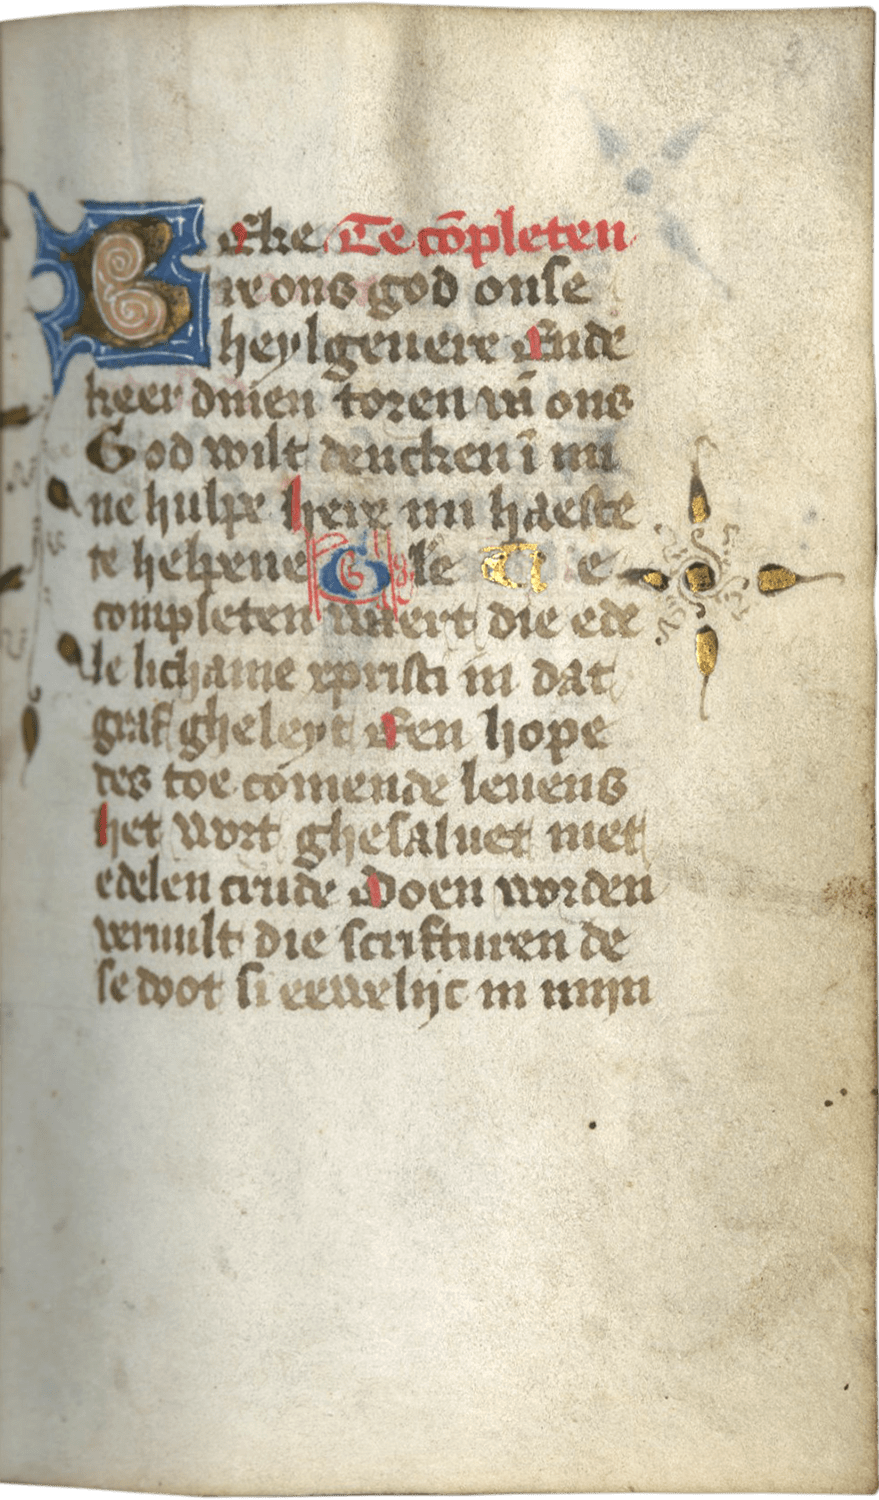 BEke Te cōpleten
re ons god onse
heylgeuere Ende
keer dinen toren vā ons
God wilt dencken ī mi
ne hulpe here mi haeste
te helpene Gle T e
completen waert die ede
le lichame xpristi in dat
graf gheleyt Een hope
des toe comende leuens
het wort ghesaluet met
edelen crude Doen worden
veruult die scrifturen de
se doot si eewelijc in mijn